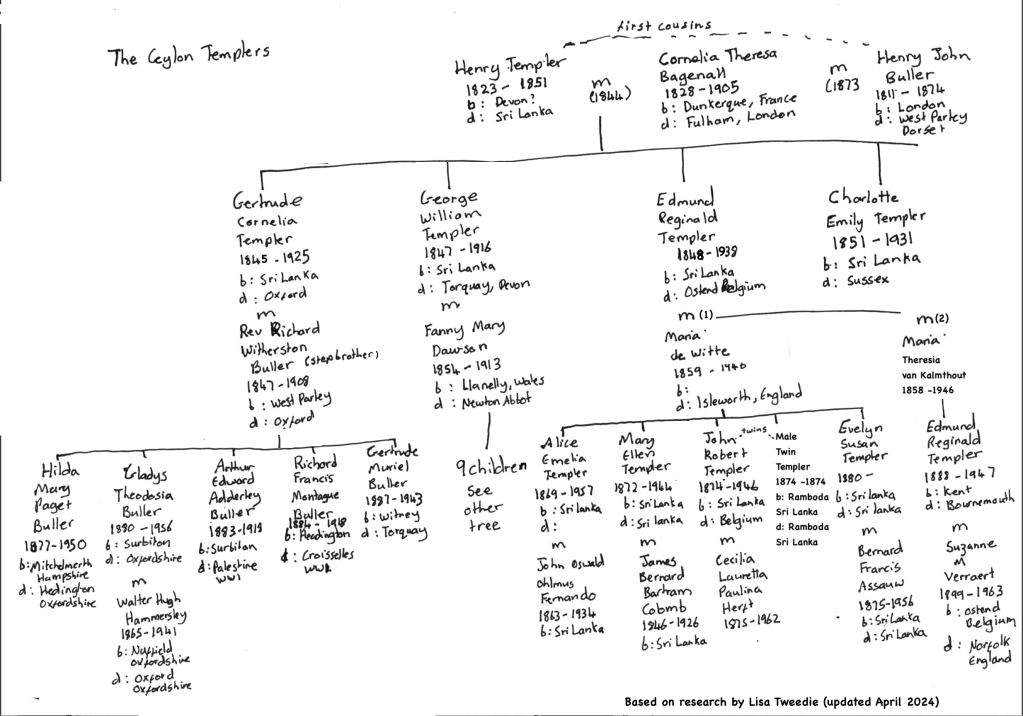 first cousins
The Ceylon Templers
Henry Templer
1823 - 1851
b: Devon?
d: Sri Lanka
m
(1844)
Cornelia Theresa
Bagenall
1828 - 1905
b: Dunkerque, France
d: Fulham, London
m
(1873
Henry John
Buller
1815 - 1874
b: London
d: West Parley
Dorset
Gertrude
Cornelia
Templer
1845 - 1925
b: Sri Lanka
d: Oxford
m
Rev Richard
Witherston
Buller (stepbrother)
1847 - 1908
b: West Parley
d: Oxford
George
William
Templer
1847 - 1916
b: Sri Lanka
d: Torquay, Devon
m
Fanny Mary
Dawson
1854 - 1913
b: Llanelly, Wales
d: Newton Abbot
9 children
see
other
tree
Edmund
Reginald
Templer
1848 - 1938
b: Sri Lanka
d: Ostend Belgium
m (1)
Maria
de Witte
1859 - 1940
b:
d: Isleworth, England
m(2)
Maria
Theresia
van Kalmthout
1858 -1946
Charlotte
Emily Templer
1851 - 1931
b: Sri Lanka
d: Sussex
Hilda
Mary
Paget
Buller
1877-1950
b: Mitchelmerth
Hampshire
d: Hedington
Oxfordshire
Gladys
Theodosia
Buller
1880 - 1956
b: Surbiton
d: Oxfordshire
m
Walter Hugh
Hammersley
1865 - 1941
b: Nuffield
Oxfordshire
d: Oxford
Oxfordshire
Arthur
Edward
Adderley
Buller
1883-1918
b: Surbiton
d: Palestine
WW1
Richard
Francis
Montague
Buller
1884 - 1918
b: Headington
d: Croisselles
WW1
Gertrude
Muriel
Buller
1887-1943
b: Witney
d: Torquay
Alice
Emelia
Templer
1869 - 1957
b: Sri Lanka
d:
m
John Oswald
Ohlmus
Fernando
1863 - 1934
b: Sri Lanka
Mary
Ellen
Templer
1872-1944
b: Sri Lanka
d: Sri Lanka
m
James
Bernard
Bartram
Colomb
1846 - 1926
b: Sri Lanka
John
Robert
Templer
1874-1946
b: Sri Lanka
d: Belgium
m
Cecilia
Lauretta
Paulina
Herft
1875-1962
twins
Male
Twin
Templer
1874 -1874
b: Ramboda
Sri Lanka
d: Ramboda
Sri Lanka
Evelyn
Susan
Templer
1880 -
b: Sri Lanka
d: Sri Lanka
m
Bernard
Francis
Assauw
1875-1956
b: Sri Lanka
d: Sri Lanka
Edmund
Reginald
Templer
1888 - 1947
b: Kent
d: Bournemouth
m
Suzanne
M
Verraert
1899 - 1963
b: Ostend
Belgium
d: Norfolk
England
Based on research by Lisa Tweedie (updated April 2024)